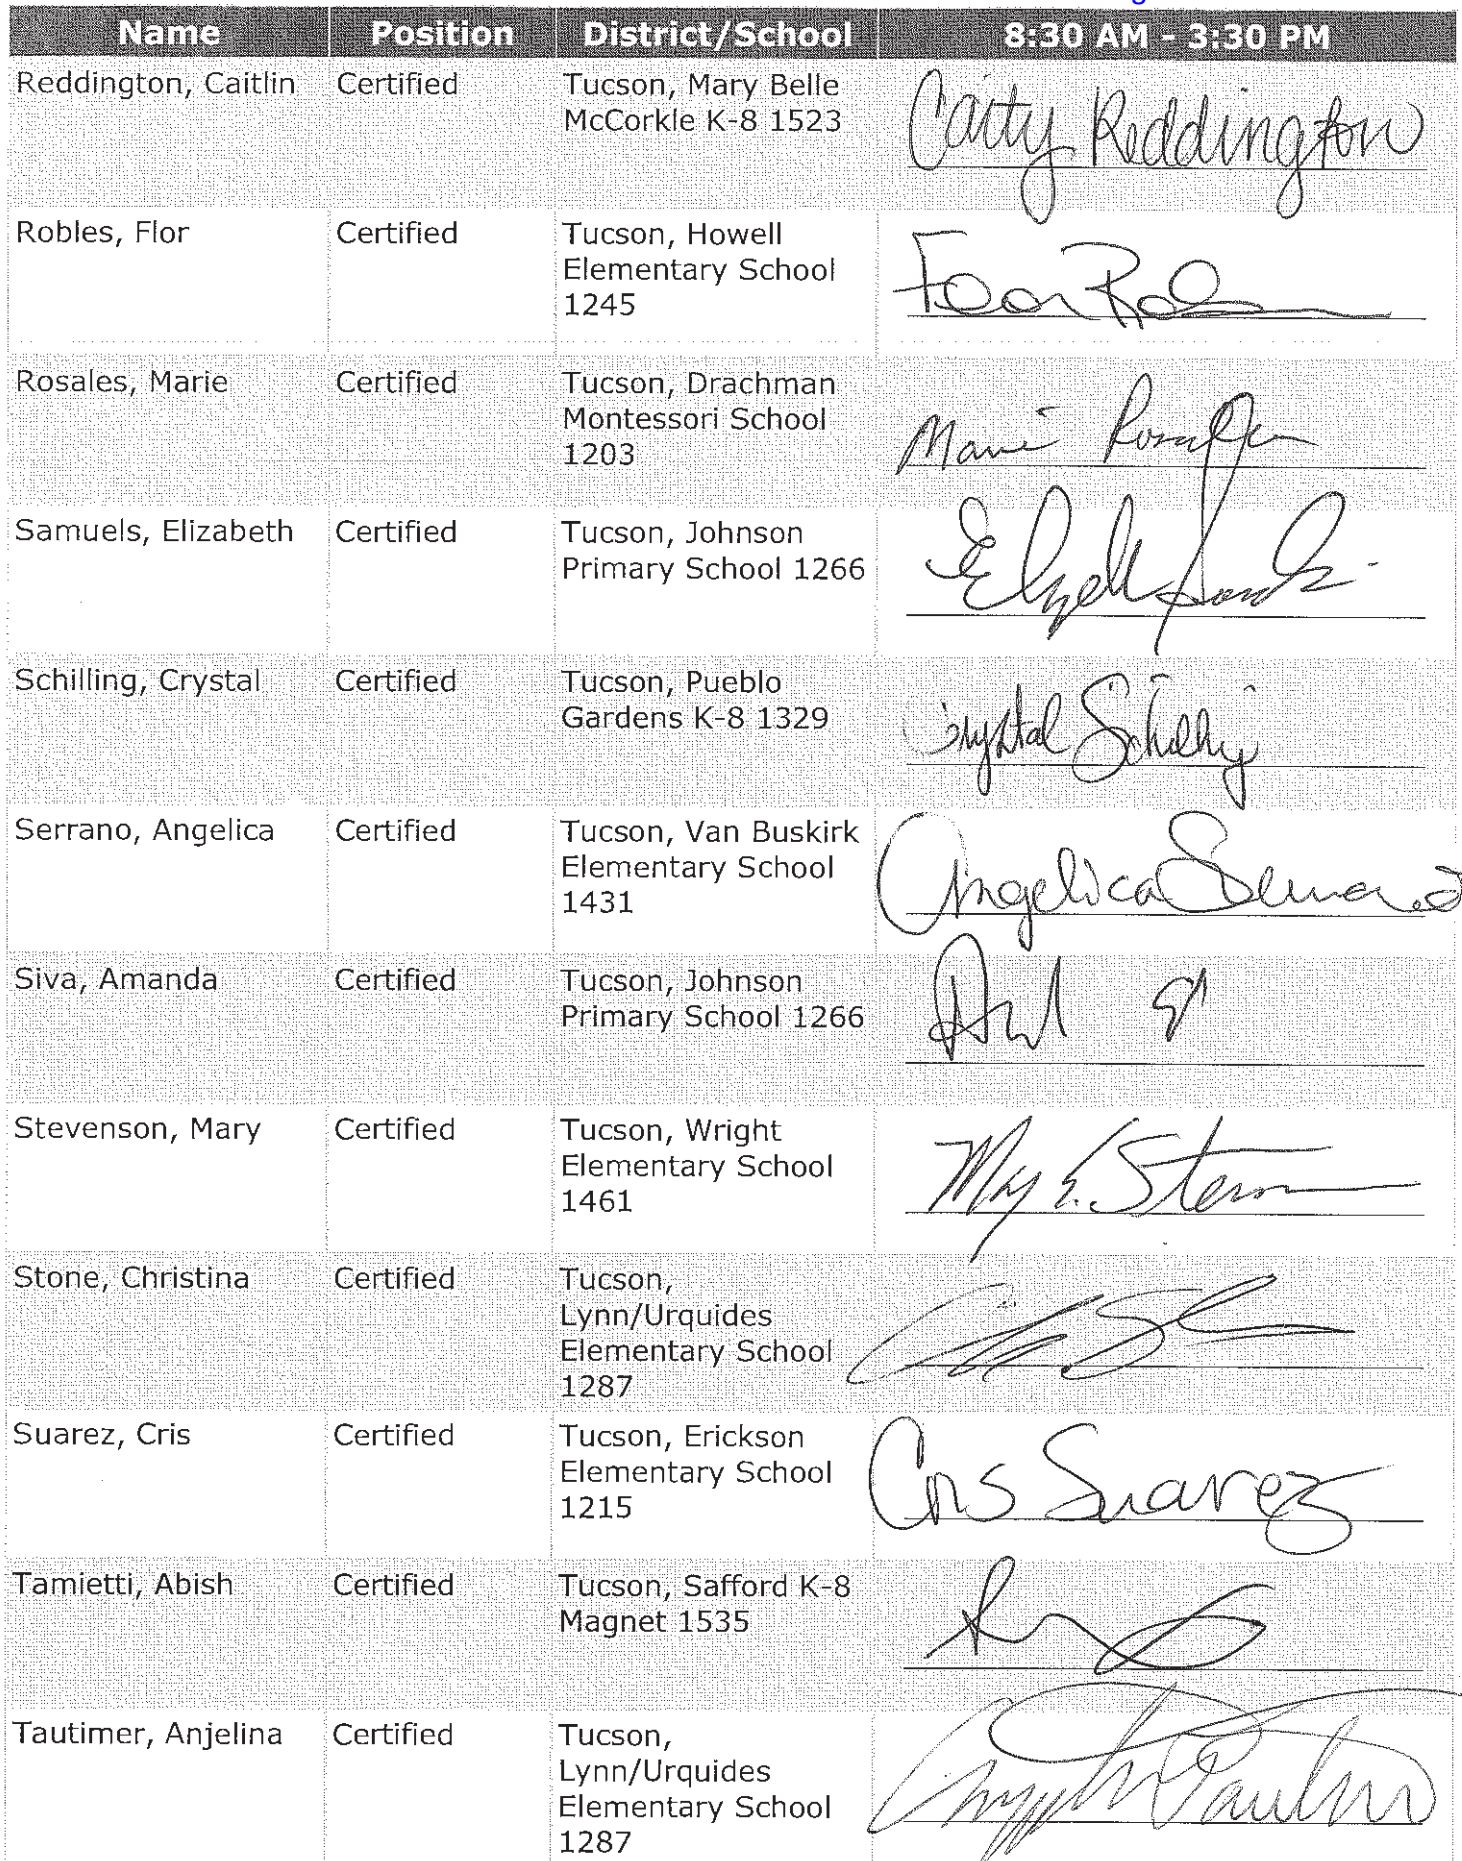 Name Position District/School 8:30 AM - 3:30 PM
Reddington, Caitlin Certified Tucson, Mary Belle
McCorkle K-8 1523
Caity Reddington
Robles, Flor Certified Tucson, Howell
Elementary School
1245
Rosales, Marie Certified Tucson, Drachman
Montessori School
1203
Marie Rosales
Samuels, Elizabeth Certified Tucson, Johnson
Primary School 1266
Schilling, Crystal Certified Tucson, Pueblo
Gardens K-8 1329
Crystal Schilling
Serrano, Angelica Certified Tucson, Van Buskirk
Elementary School
1431
Angelica Serrano
Siva, Amanda Certified Tucson, Johnson
Primary School 1266
Stevenson, Mary Certified Tucson, Wright
Elementary School
1461
Stone, Christina Certified Tucson,
Lynn/Urquides
Elementary School
1287
Suarez, Cris Certified Tucson, Erickson
Elementary School
1215
Cris Suarez
Tamietti, Abish Certified Tucson, Safford K-8
Magnet 1535
Tautimer, Anjelina Certified Tucson,
Lynn/Urquides
Elementary School
1287